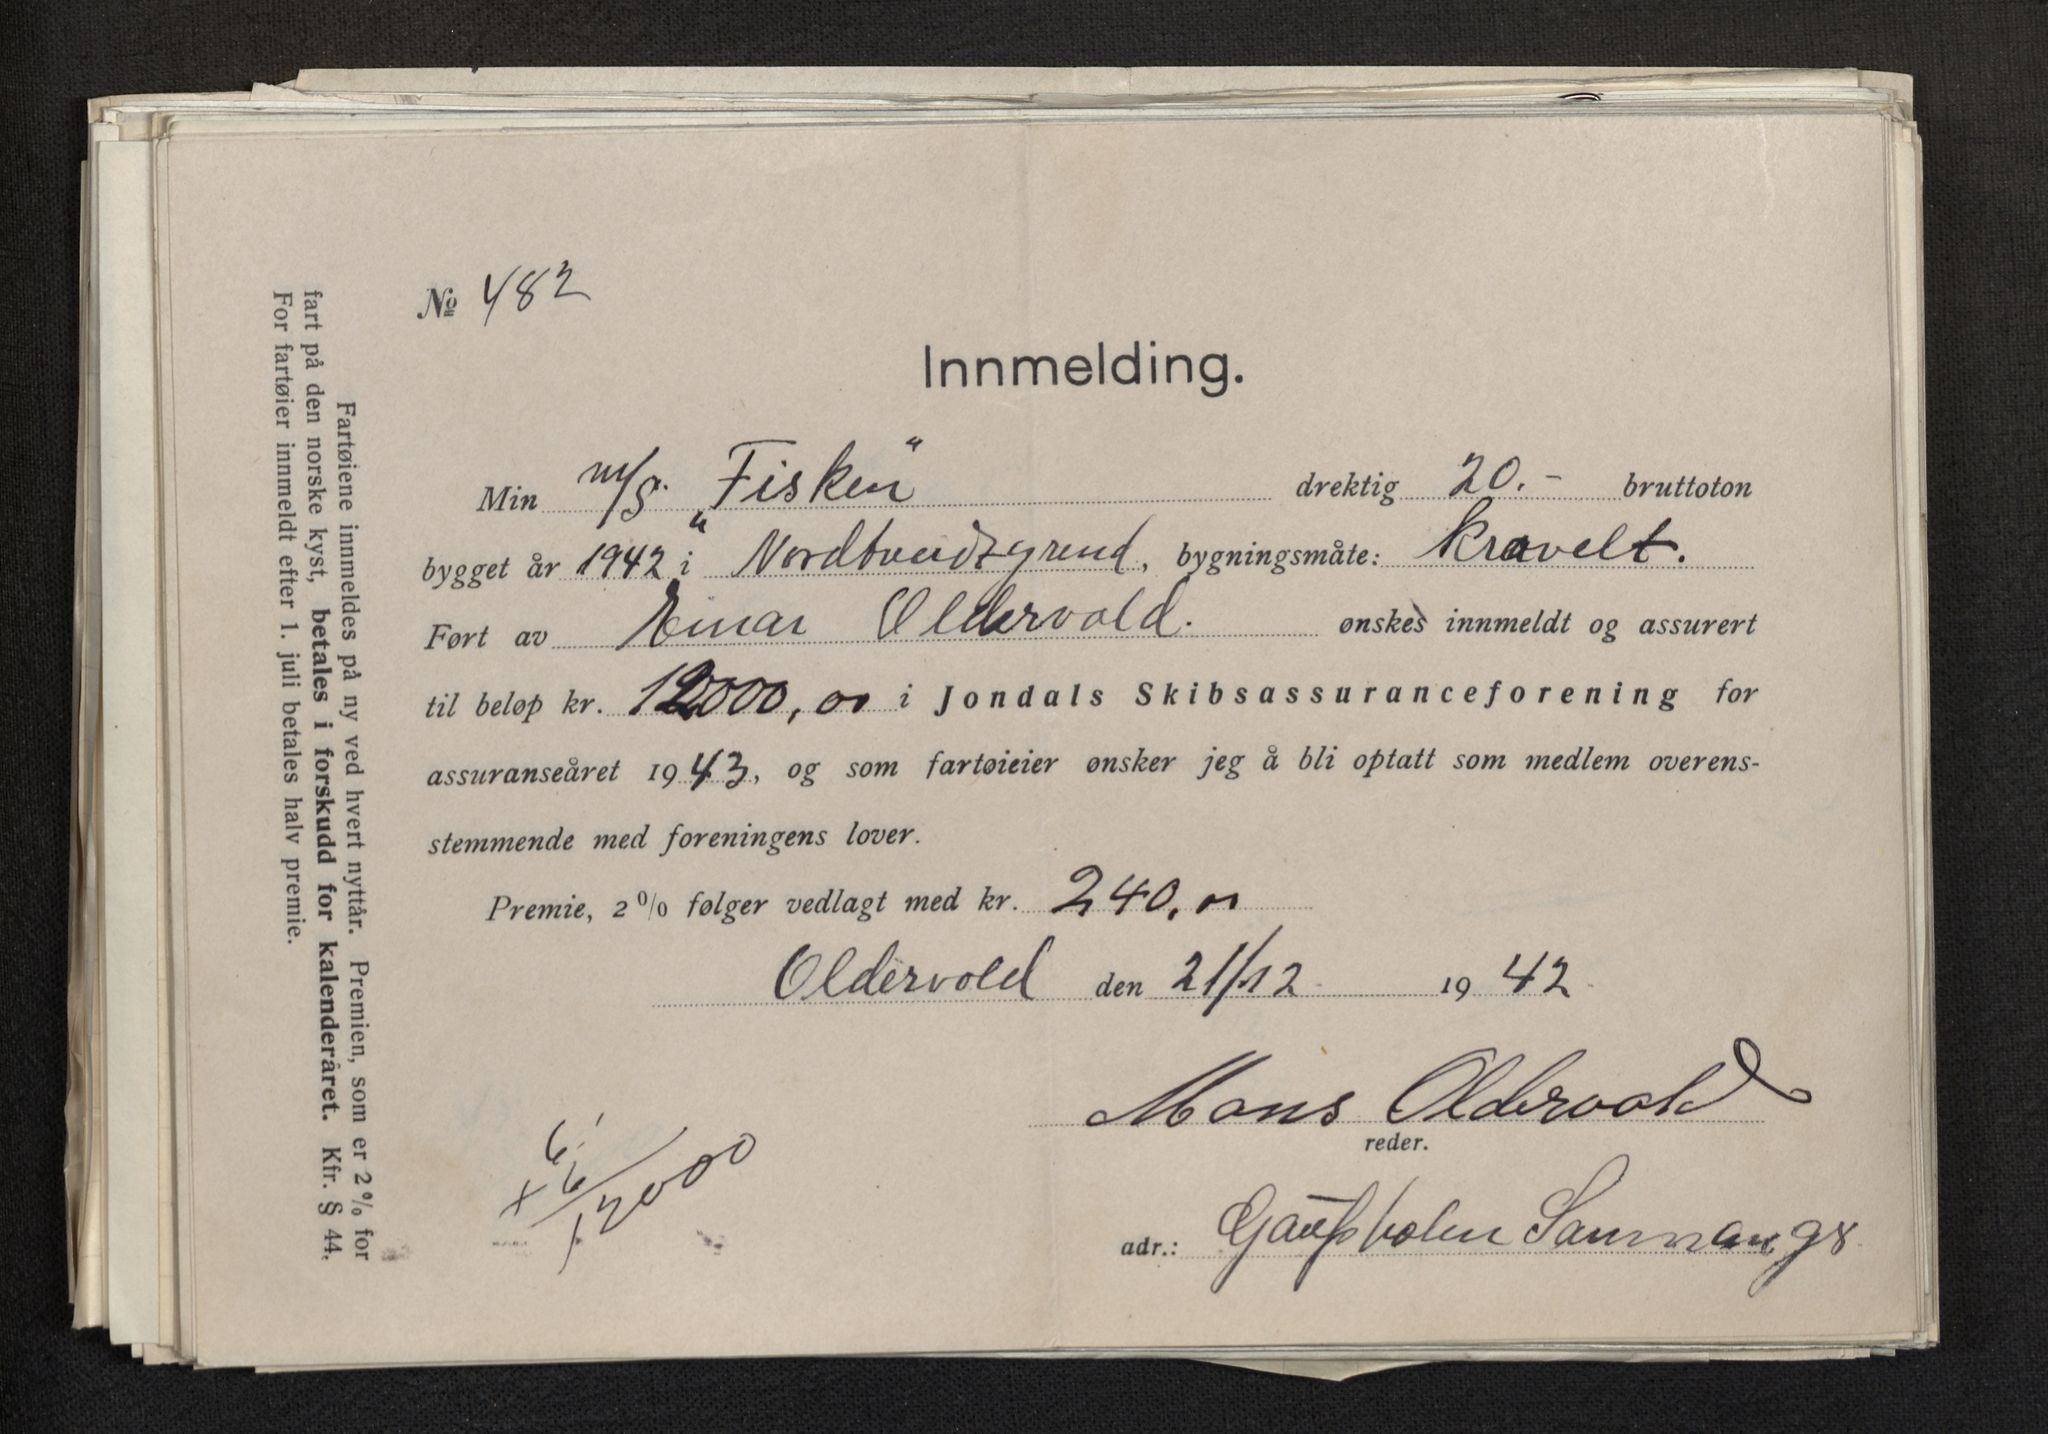 № 482
Innmelding.
Min m/S. „Fisken“ drektig 20.- bruttoton
bygget år 1942 i Nordtveidtgrend, bygningsmåte: kravelt.
Ført av Einar Oldervold. ønskes innmeldt og assurert
til beløp kr. 12000,00 i Jondals Skibsassuranceforening for
assuranseåret 1943, og som fartøieier ønsker jeg å bli optatt som medlem overens-
stemmende med foreningens lover.
Premie, 2 % følger vedlagt med kr. 240,00
Oldervold den 21/12 1942
Mons Oldervold
reder.
adr.: Gaupholm Samnanger
Fartøiene innmeldes på ny ved hvert nyttår. Premien, som er 2 % for
fart på den norske kyst, betales i forskudd for kalenderåret. Kfr. § 44.
For fartøier innmeldt efter 1. juli betales halv premie.
12000